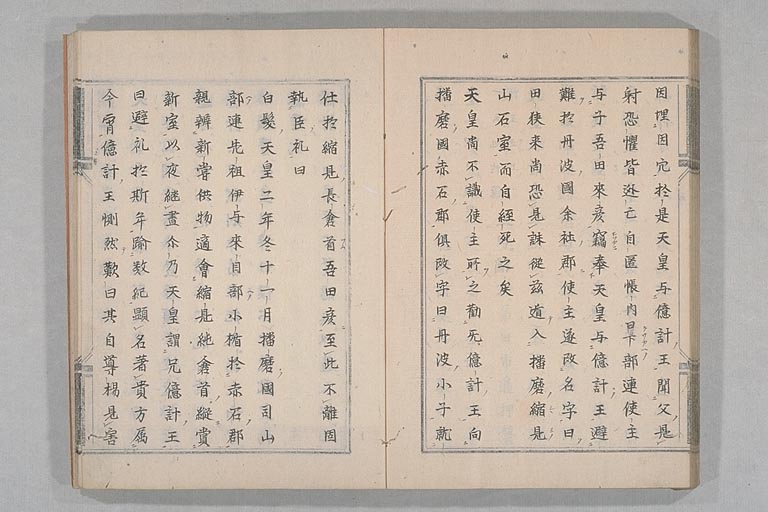 因埋因宂於是天皇与億計王聞父見
射恐懼皆迯亡自匿帳内日下部連使主
与子吾田來彦竊奉天皇与億計王避
難於丹波國余社郡使主遂改名字曰
田㑻來尚恐見誅從茲遁入播磨縮見
山石室而自經死之矣
天皇尚不識使主所之勸兄億計王向
播磨國赤石郡俱改字曰丹波小子就
仕於縮見長倉首吾田彦至此不離固
執臣礼曰
白髮天皇二年冬十一月播磨國司山
部連先祖伊与來目部小楯於赤石郡
親辨新嘗供物適會縮見純倉首縱賞
新室以夜継晝尒乃天皇謂兄億計王
曰避礼於斯年踰数紀顯名著貴方属
今宵億計王惻然歎曰其自導楊見害